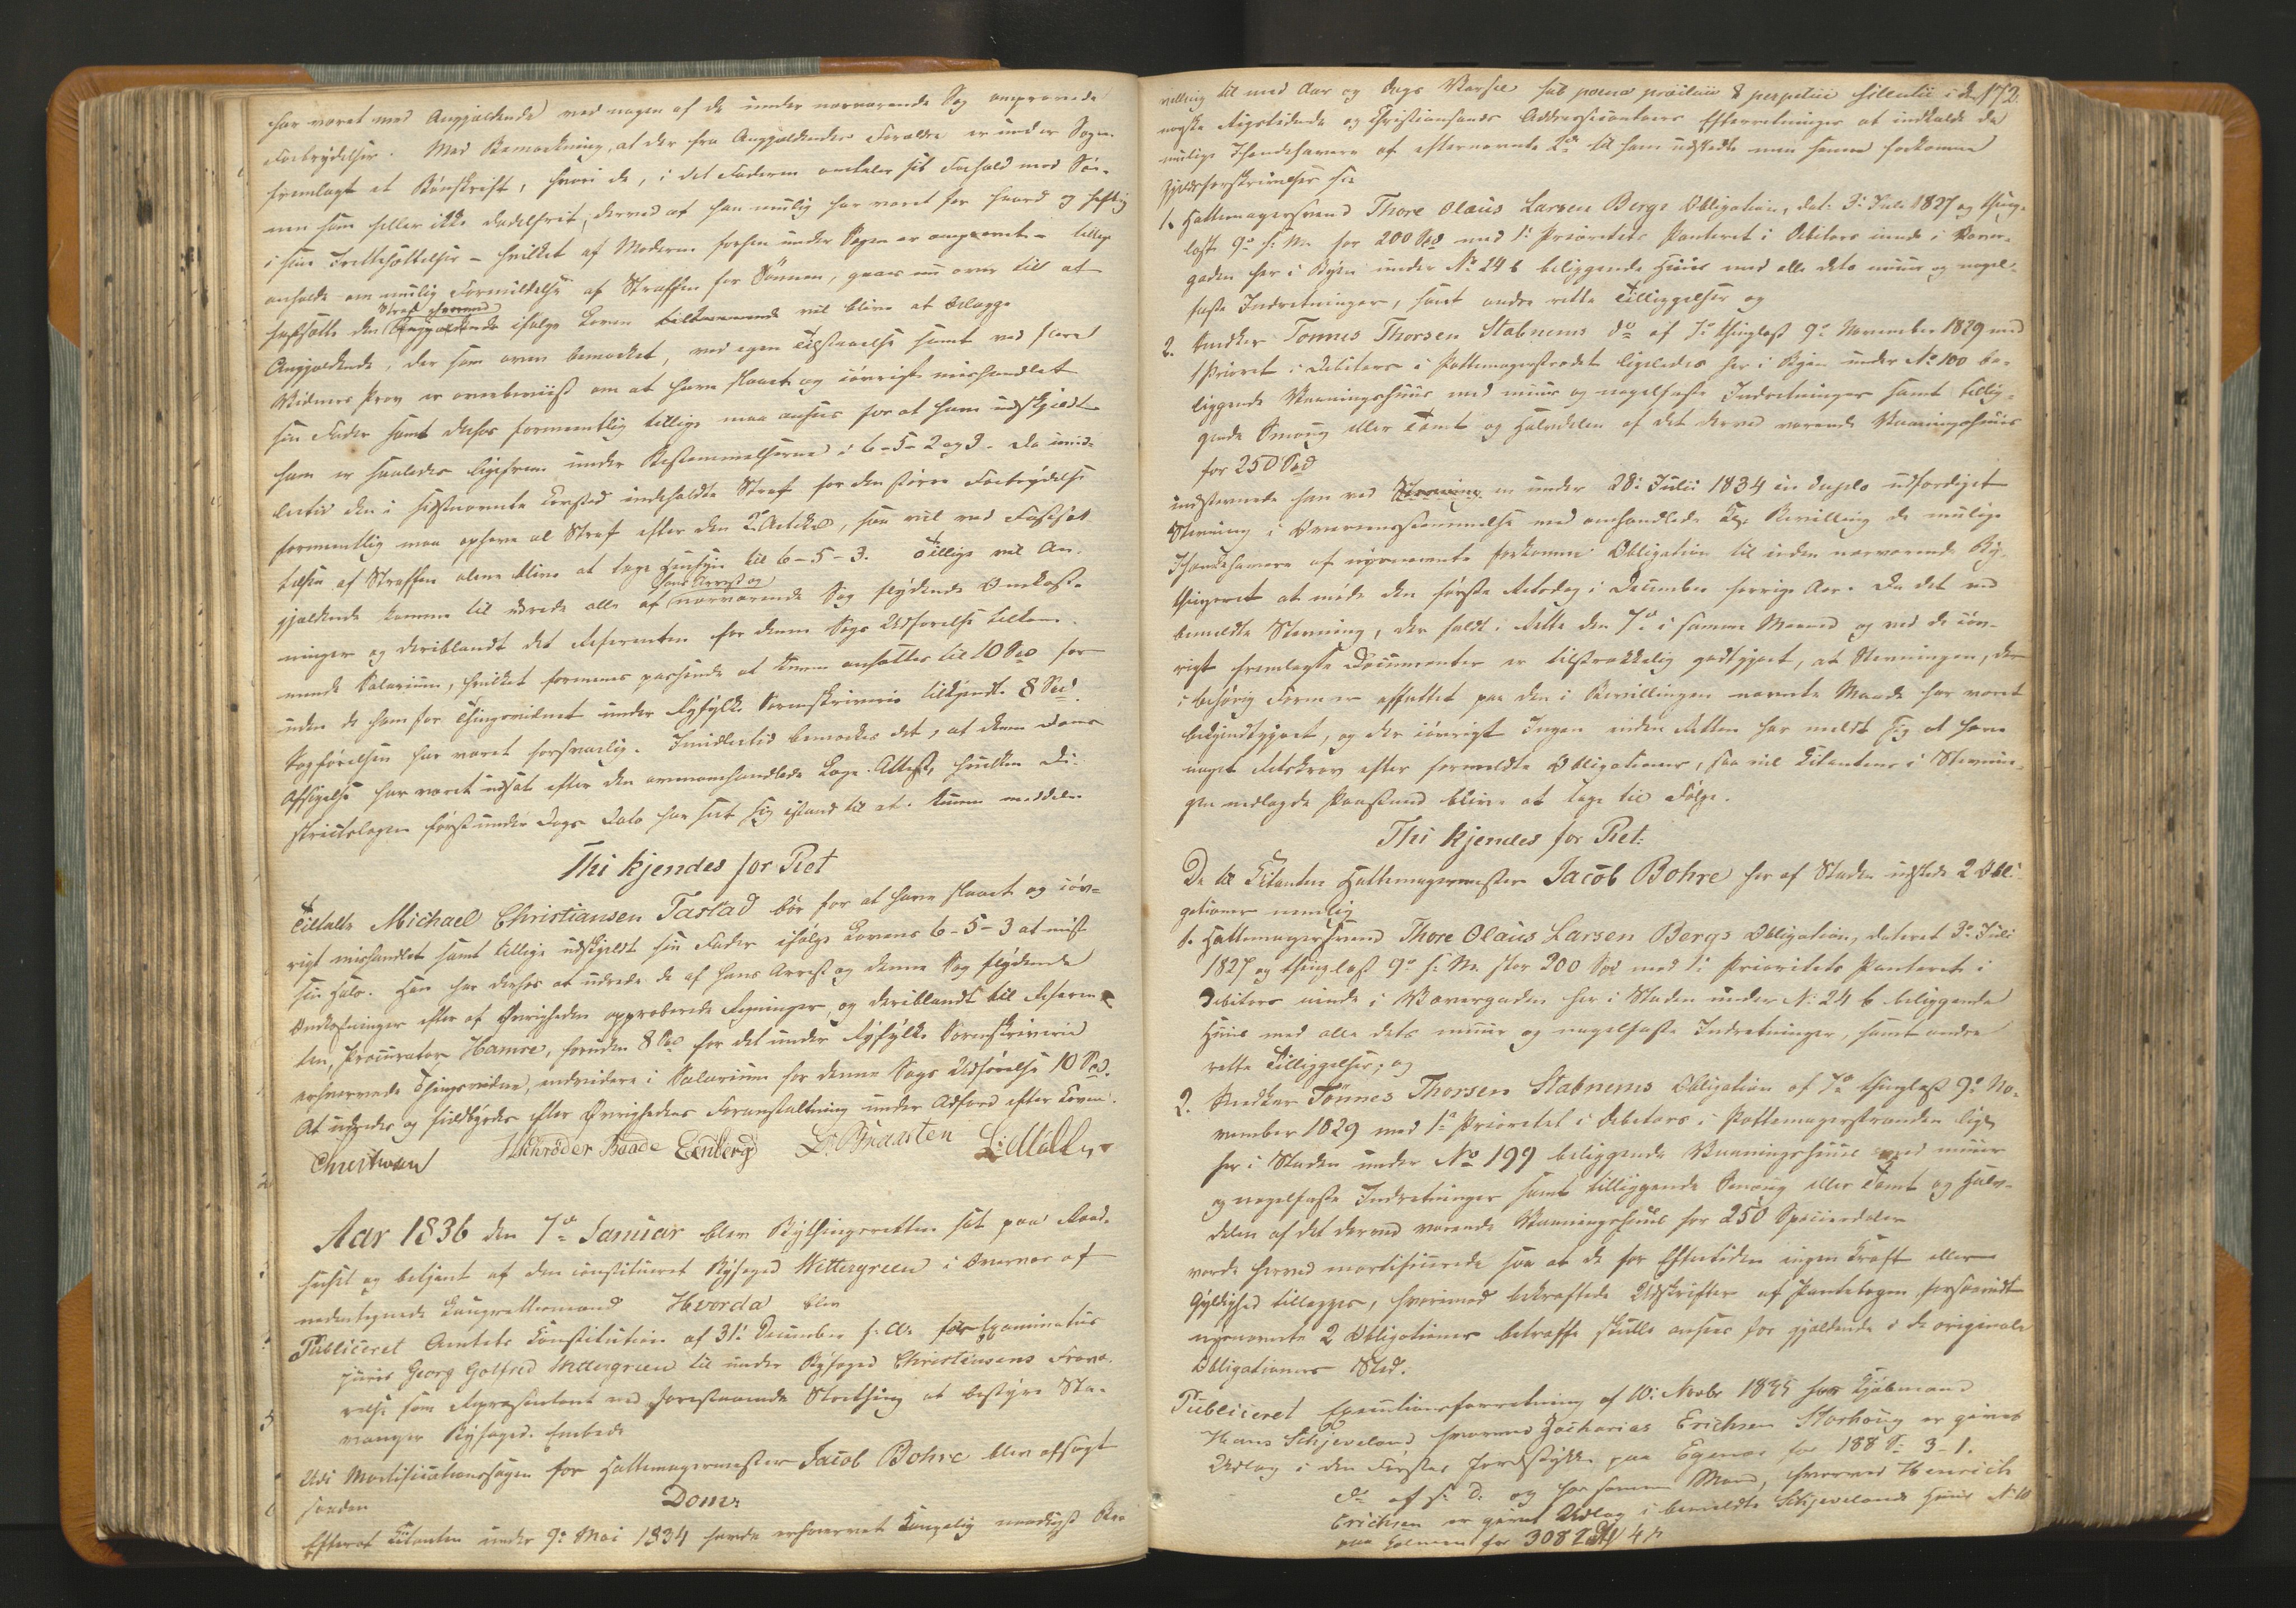 har været med Angjældende ved nogen af de under nærværende Sag ommeldte
Forbrydelser. Med Bemærkning, at der fra Angjældendes Forældre er under Sagen
fremlagt et Bønskrift, hvori de, i det Faderen omtaler sit Forhold mod Søn-
nen som heller ikke dadelfrit, derved at han mulig har været for haard og heftig
i sine Irettesættelser – hvilket af Moderen forhen under Sagen er ompræsteret – tillige
anholde om mulig Formildelse af Straffen for Sønnen, gaaes nu over til at
fastsætte den Straf hvormed Angjældende ifølge Loven vil blive at belægge
Angjældende, der som oven bemærket, ved egen Tilstaaelse samt ved flere
Vidners Prov er overbeviist om at have slaaet og iøvrigt mishandlet
sin Fader samt derhos formeentlig tillige maa ansees for at have udskjældt
ham er saaledes ligefrem under Bestemmelserne i 6-5-2 og 3. Da imid-
lertid den i sidstnævnte Lovsted indeholdte Straf for den større Forbrydelse
formeentlig maa ophæve al Straf efter den 2den Artikel, saa vil ved Fastsæt-
telsen af Straffen alene blive at tage Hensyn til 6-5-3. Tillige vil An-
gjældende komme til at udrede alle af hans Arrest og nærværende Sag flydende Omkost-
ninger og deriblandt det Referenten for denne Sags Udførelse tilkom-
mende Salarium, hvilket formenes passende at kunne ansættes til 10 Spd for
uden de ham for Thingsvidnet under Ryfylke Sorenskriverie tilkjendte 8 Spd.
Sagførelsen har været forsvarlig. Imidlertid bemærkes det, at denne Doms
Afsigelse har været udsat efter den ovenomhandlede Læge-Attest, hvilken Di-
strictslægen først under Dags Dato har seet sig istand til at kunne meddele
Thi kjendes for Ret
Tiltalte Michael Christiansen Tastad bør for at have slaaet og iøv-
rigt mishandlet samt tillige udskjeldt sin Fader ifølge Lovens 6-5-3 at miste
sin Hals. Han har derhos at udrede de af hans Arrest og denne Sag flydende
Omkostninger efter af Øvrigheden approberede Regninger, og deriblandt til Referen-
ten, Procurator Hamre, foruden 8 Spd for det under Ryfylke Sorenskriverie
erhvervede Thingsvidne, endvidere i Salarium for denne Sags Udførelse 10 Spd.
At udredes og fuldbyrdes efter Øvrighedens Foranstaltning under Adfærd efter Loven.
Christensen HSchröder Baade Eenberg L. Braasten L: Møller
Aar 1836 den 7de Januar blev Bythingsretten sat paa Raad-
huset og betjent af den constituerede Byfoged Wettergreen i Overvær af
nedentegnede Laugrettemænd Hvorda blev
Publiceret Amtets Constitution af 31. December f: A. for Examinatus
juris Georg Gotfred Wettergreen til under Byfoged Christensens Fravæ-
relse som Repræsentant ved forestaaende Storthing at bestyre Sta-
vanger Byfoged-Embede
Udi Mortificationssagen for Hattemagermester Jacob Bohre blev afsagt
saadan
Dom:
Efterat Citanten under 9. Mai 1834 havde erhvervet Kongelig naadigst Be-
172.
villing til med Aar og Dags Varsel sub poena præclusi & perpetui silentii i den
norske Rigstidende og Christiansands Addressecontoirs Efterretninger at indkalde de
mulige Ihændehavere af efternævnte 2de til ham udstedte men senere forkomne
Gjeldsforskrivelser sc:
1. Hattemagersvend Thore Olaus Larsen Bergs Obligation, dat: 3. Juli 1827 og thing-
læst 9. s: M. for 200 Spd med 1. Prioritets Panteret i Debitors iende i Bover-
gaden her i Byen under No 24 b beliggende Huus med alle dets muur og nagel-
faste Indretninger, samt andre rette Tilliggelser og
2. Snedker Tønnes Thorsen Stabnems do af 7de thinglæst 9. November 1829 med
1 Priorit: i Debitors i Pottemagerstrædet ligeledes her i Byen under No 100 be-
liggende Vaaningshuus med muur og nagelfaste Indretninger samt tillig-
gende Smøug eller Tomt og Halvdelen af det derved værende Vaaningshuus
for 250 Spd
indstevnede han ved en under 28. Julii 1834 in duplo udfærdiget
Stevning i Overeensstemmelse med omhandlede Kgl. Bevilling de mulige
Ihændehavere af nysnævnte forkomne Obligation til inden nærværende By-
thingsret at møde den første Retsdag i December forrige Aar. Da det ved
bemeldte Stevning, der faldt i Rette den 7de i samme Maaned og ved de iøv-
rigt fremlagte Documenter er tilstrækkelig godtgjort, at Stevningen, der
i behørig Form er affattet paa den i Bevillingen nævnte Maade har været
bekjendtgjort, og der iøvrigt Ingen inden Retten har meldt sig at have
noget Retskrav efter formeldte Obligationer, saa vil Citantens i Stevnin-
gen nedlagde Paastand blive at tage til Følge.
Thi kjendes for Ret:
De til Citanten Hattemagermester Jacob Bohre her af Staden udstede 2 Obli-
gationer nemlig
1. Hattemagersvend Thore Olaus Larsen Bergs Obligation, dateret 3. Juli
1827 og thinglæst 9. s: M. stor 200 Spd med 1. Prioritets Panteret i
Debitors iende i Bovergaden her i Staden under No 24 b beliggende
Huus med alle dets muur og nagelfaste Indretninger, samt andre
rette Tilliggelser; og
2. Snedker Tønnes Thorsen Stabnems Obligation af 7de thinglæst 9. No-
vember 1829 med 1. Prioritet i Debitors i Pottemagerstranden lige
her i Staden under No 199 beliggende Vaaningshuus med muur
og nagelfaste Indretninger samt tilliggende Smøug eller Tomt og Halv-
delen af det derved værende Vaaningshuus for 250 Speciedaler
vorde herved mortificerede saa at de for Eftertiden ingen Kraft eller
Gyldighed tillægges, hvorimod bekræftede Udskrifter af Pantebogen, forsaavidt
nysnævnte 2 Obligationer betræffe skulle ansees for gjældende i de originale
Obligationers Sted.
Publiceret Executionsforretning af 10. Novbr 1835 for Kjøbmand
Hans Schjeveland hvorved Zacharias Erichsen Storhoug er gjort
Udlæg i den Førstes Jordstykke paa Egenæs for 188 Sp. 3-1.
do af s: D: og for samme Mand, hvorved Henrich
Erichsen er gjort Udlæg i bemeldte Schjevelands Huus No 10
paa Holmen for 308 4